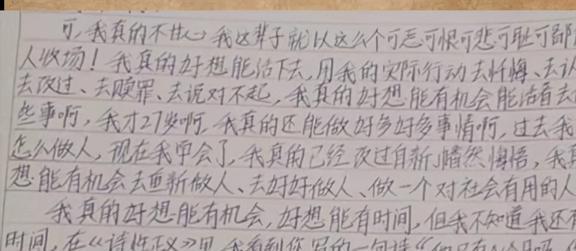 可,我真的不甘心我这辈子就以这么个可恶可恨可悲可耻可鄙
人收场!我真的好想能活下去,用我的实际行动去忏悔、去认
去改过、去赎罪、去说对不起,我真的好想能有机会能活着去
些事啊,我才27岁啊,我真的还能做好多好多事情啊,过去我
怎么做人,现在我学会了,我真的已经改过自新幡然悔悟,我真
想能有机会去重新做人、去好好做人、做一个对社会有用的人
我真的好想能有机会,好想能有时间,但我不知道我还
时间,在《诗性正义》里 我看到您写的一句诗"